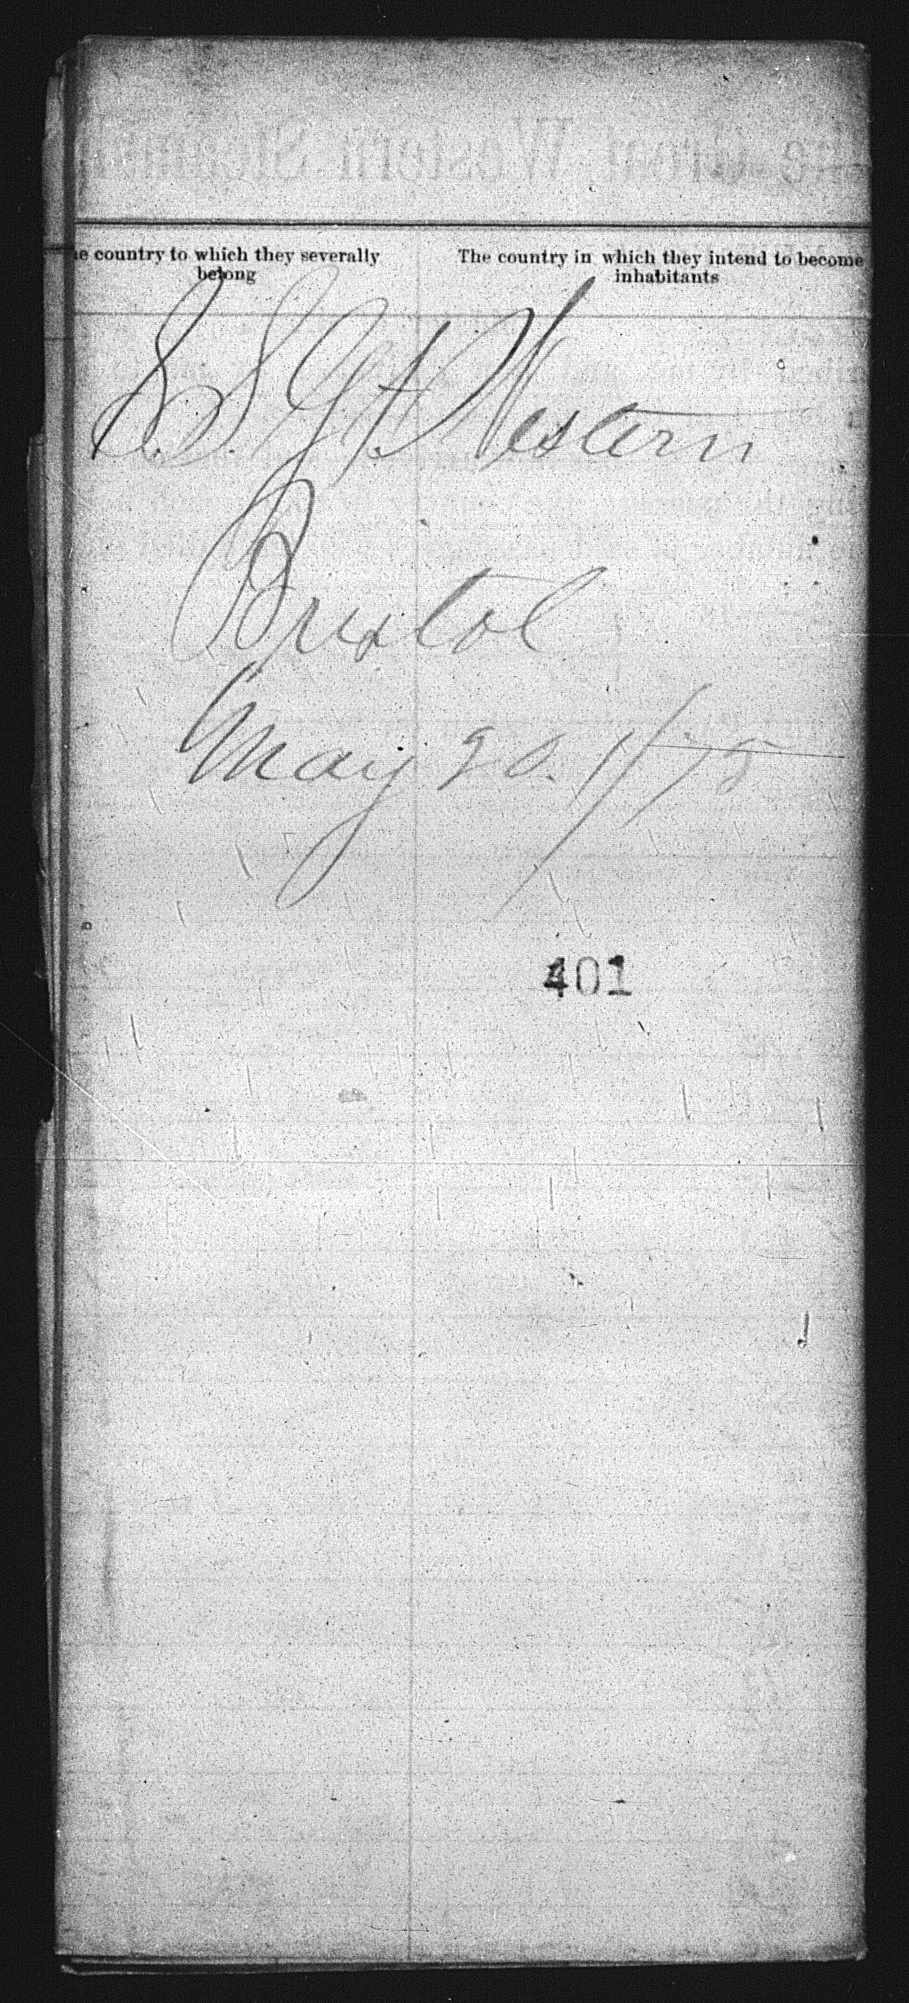 country to which they severally
belong
The country in which they intend to become
inhabitants
S.S. Gt. Western
Bristol
May 20. 1/75
401